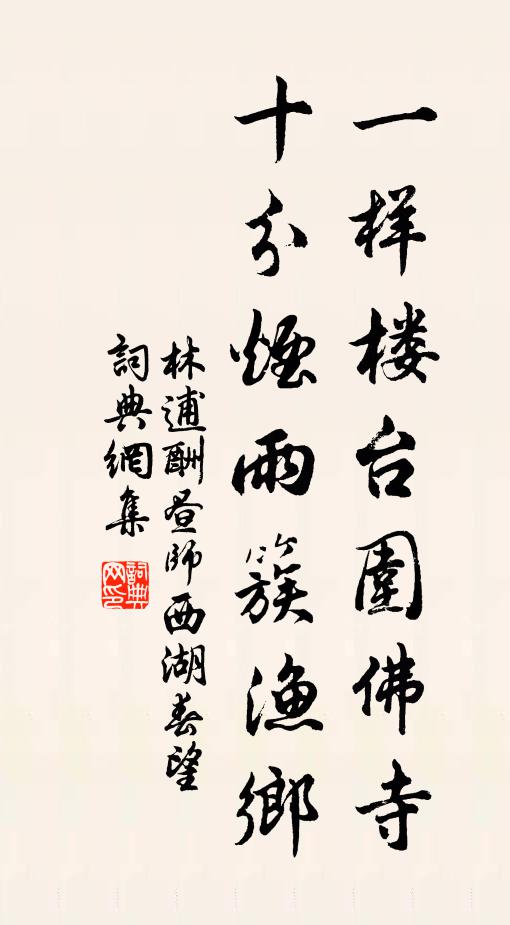 一样楼台围佛寺
十分煙雨簇渔鄉
林逋酬昼師西湖春望
詞典網集
詞典网印